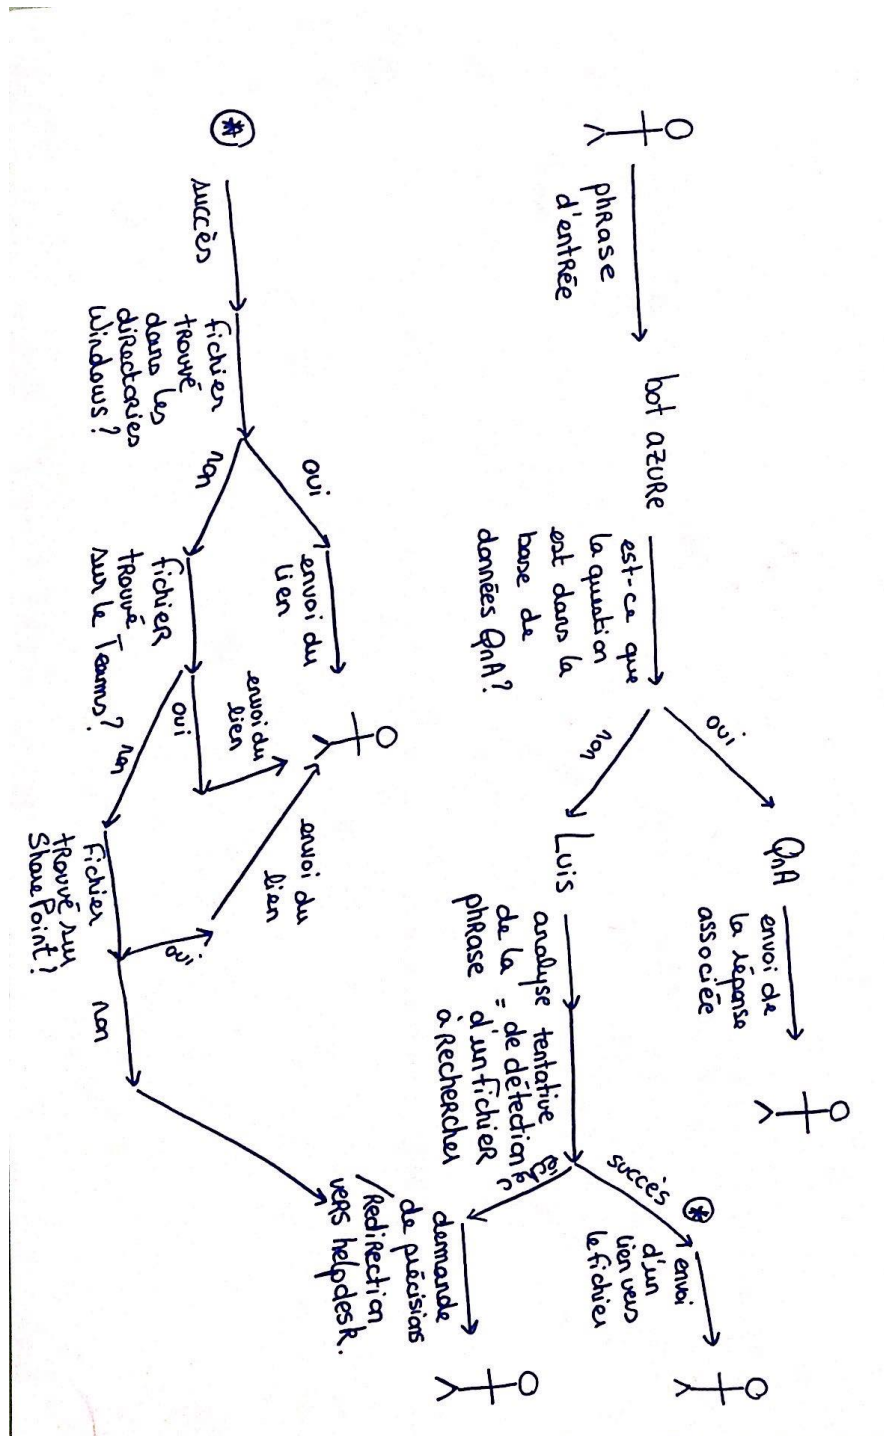 phrase
d'entrée
bot azure
est-ce que
la question
est dans la
base de
données QnA?
oui
QnA
envoi de
la réponse
associée
non
Luis
analyse
de la
phrase
=
tentative
de détection
d'un fichier
à rechercher
succès
*
envoi
d'un
lien vers
le fichier
demande
de précisions
/ Redirection
vers helpdesk.
*
succès
fichier
trouvé
dans les
directories
Windows?
oui
envoi du
lien
non
fichier
trouvé
sur le Teams?
oui
envoi du
lien
non
fichier
trouvé sur
SharePoint?
oui
envoi du
lien
non